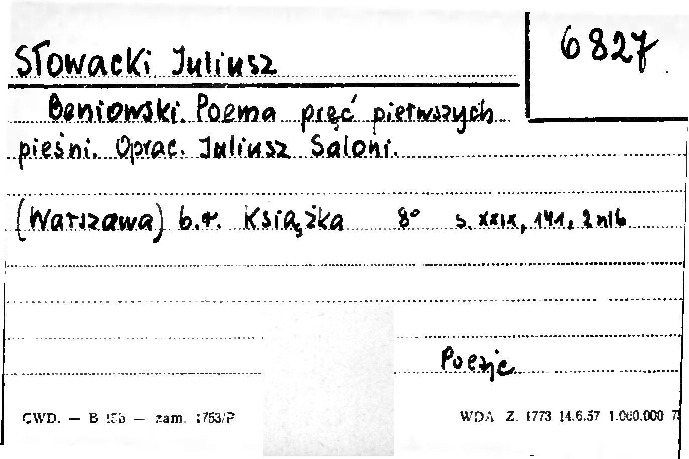 Słowacki Juliusz
6827
Beniowski. Poema pięć pierwszych
pieśni. Oprac. Juliusz Saloni.
(Warszawa) b.r. Książka 8° s. XXIX, 141, 2 nlb
Poezje
CWD. — B 15b — zam. 1753/P
WDA Z. 1773 14.6.57 1.000.000